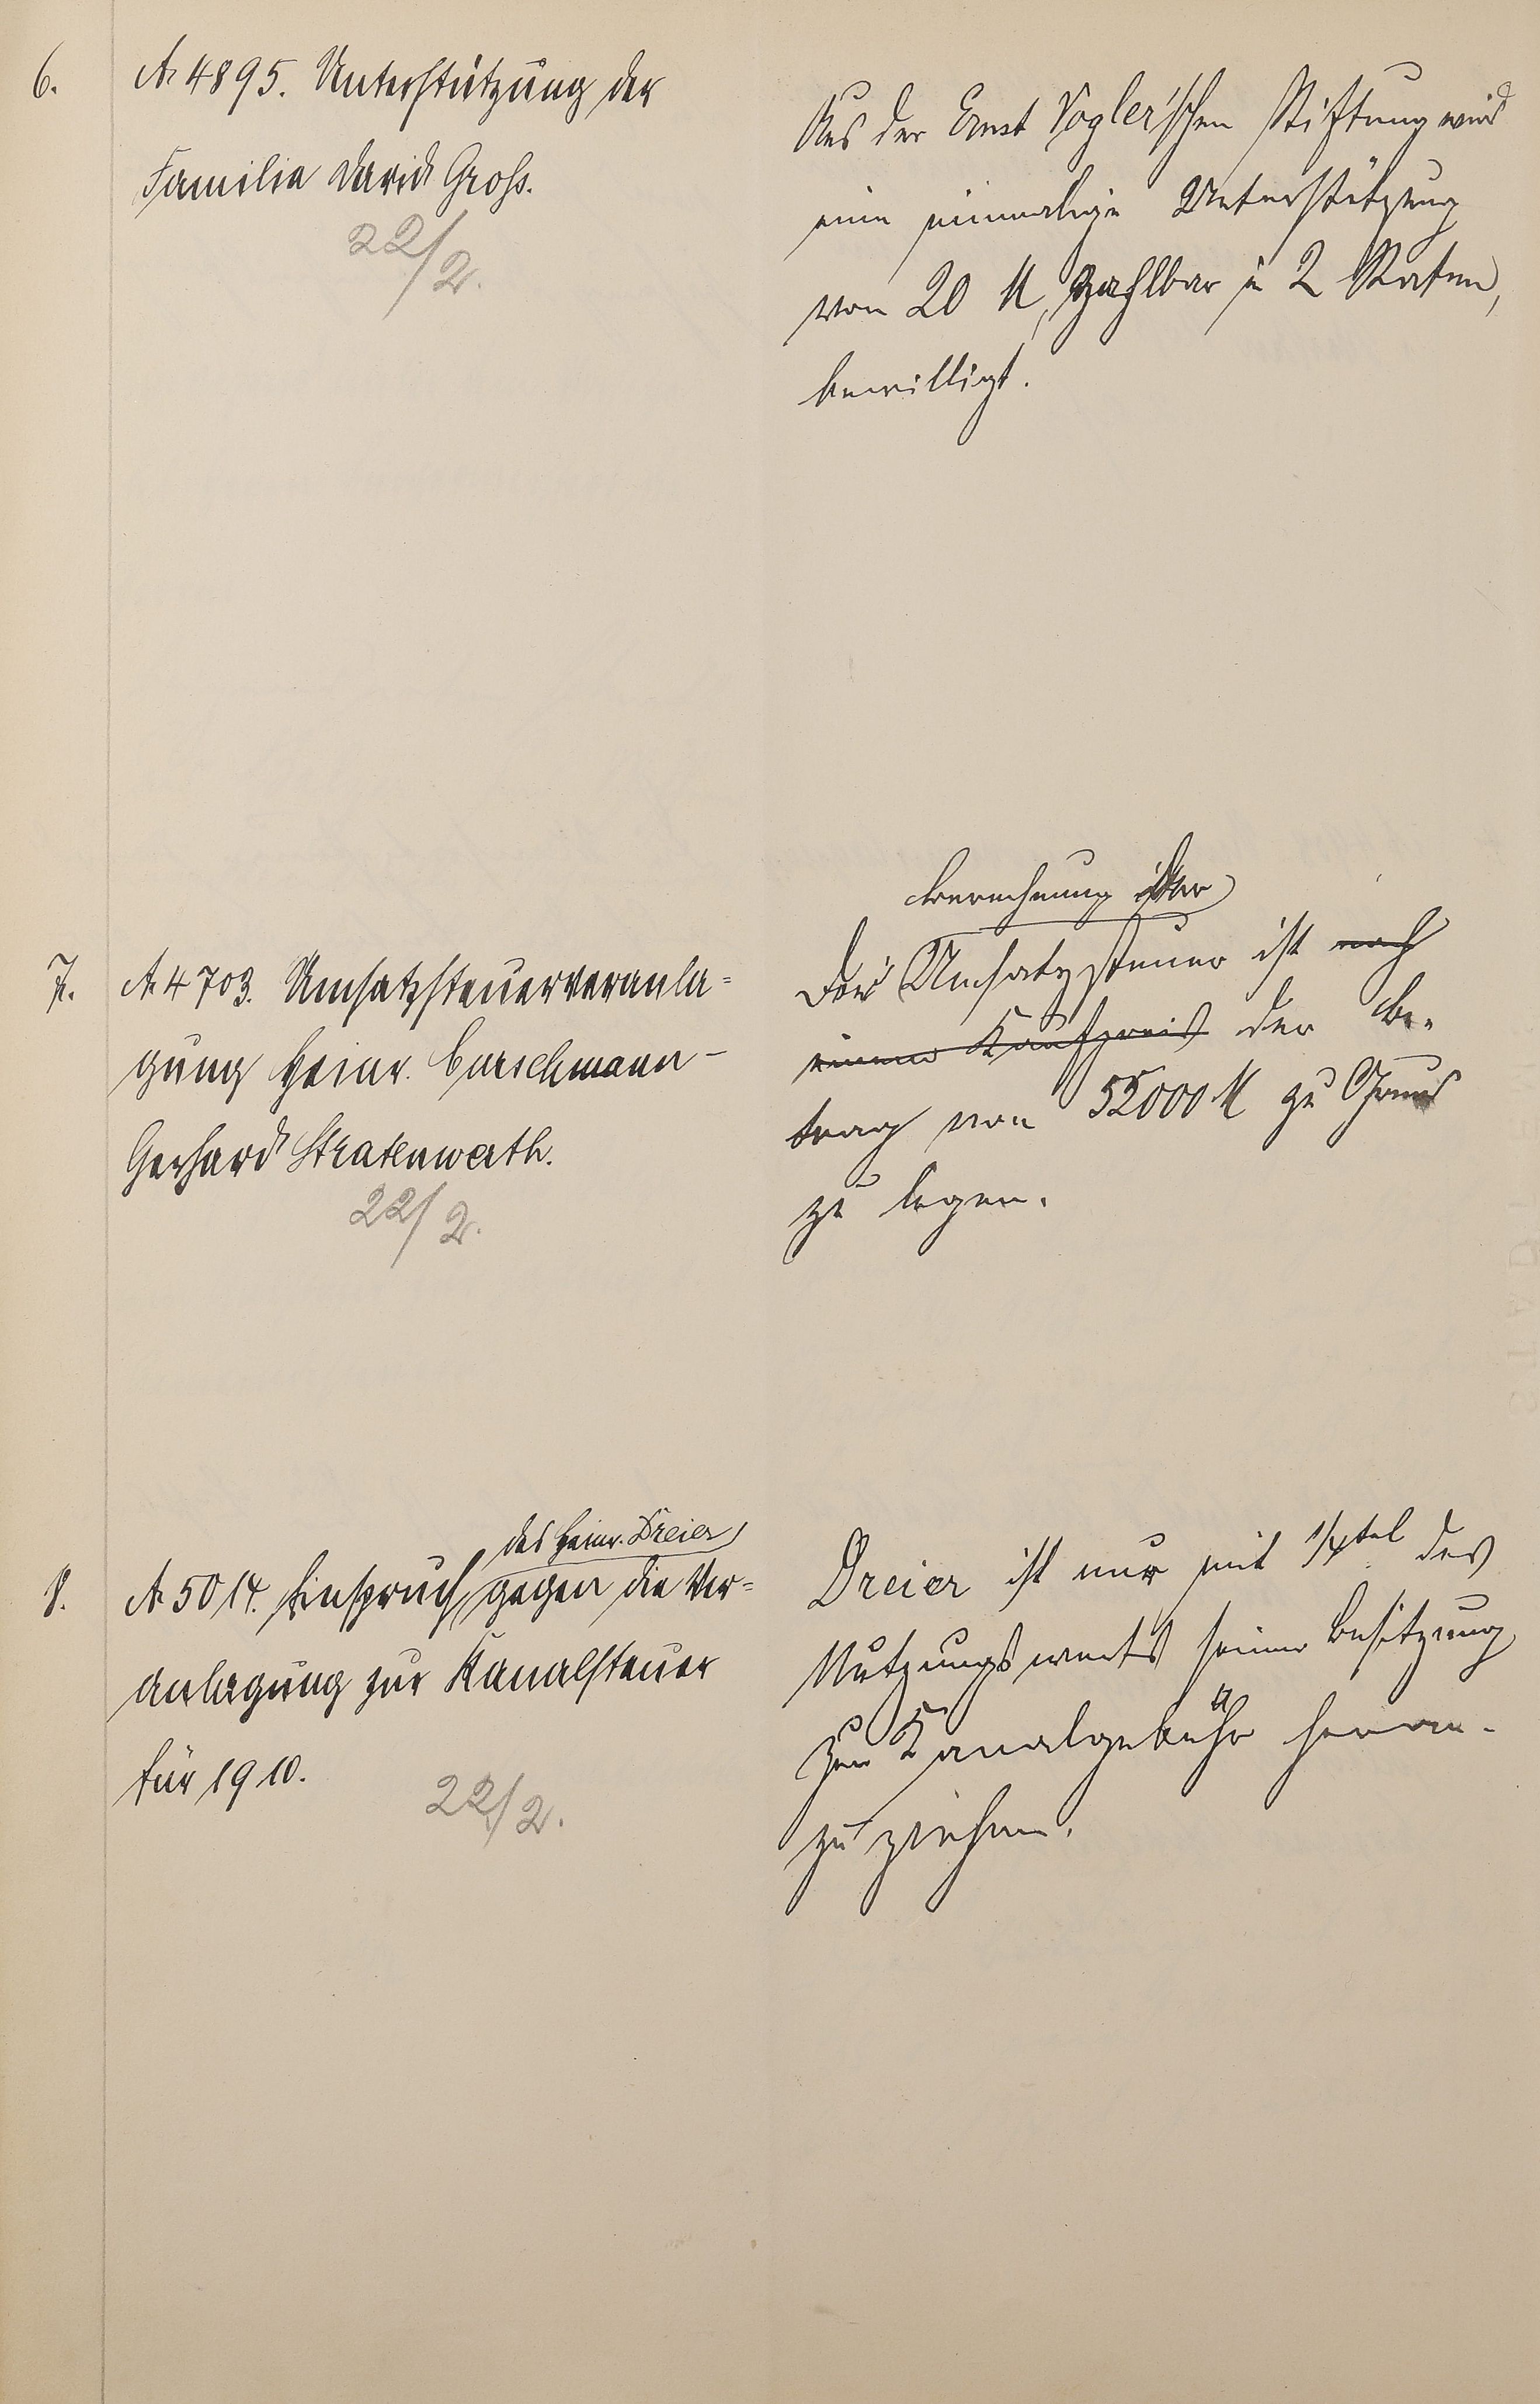 6.
A. 4895. Unterstützung der
Familie David Groß.
22/2.
Aus der Ernst Vogler'schen Stiftung wird
eine einmalige Unterstützung
von 20 M, zahlbar in 2 Raten,
bewilligt.
7.
A. 4703. Umsatzsteuerveranla=
gung Heinr. Burschmann –
Gerhard Stratenwerth.
22/2.
Berechnung der
Der Umsatzsteuer ist nach
einem Kaufpreis der Be-
trag von 55000 M zu Grund
zu legen.
8.
des Heinr. Dreier
A. 5014. Einspruch gegen die Ver=
anlagung zur Kanalsteuer
für 1910.
22/2.
Dreier ist nur mit 1/4tel des
Nutzungswerts seiner Besitzung
zur Kanalgebühr heran-
zu ziehen.